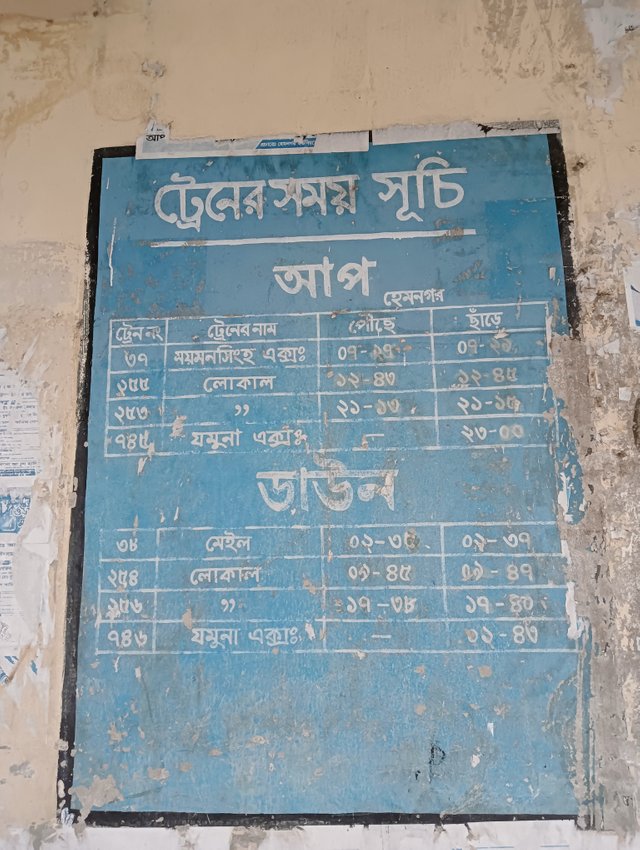 আপ
ট্রেনের সময় সূচি
আপ
হেমনগর
ট্রেন নং ট্রেনের নাম পৌঁছে ছাঁড়ে
৩৭ ময়মনসিংহ এক্সঃ ০৭-২৭ ০৭-২৯
২৫৫ লোকাল ১২-৪৩ ১২-৪৫
২৫৩ ,, ২১-১৩ ২১-১৫
৭৪৫ যমুনা এক্সঃ — ২৩-০০
ডাউন
৩৮ মেইল ০২-৩৫ ০২-৩৭
২৫৪ লোকাল ০৬-৪৫ ০৬-৪৭
২৫৬ ,, ১৭-৩৮ ১৭-৪০
৭৪৬ যমুনা এক্সঃ — ০২-৪৩